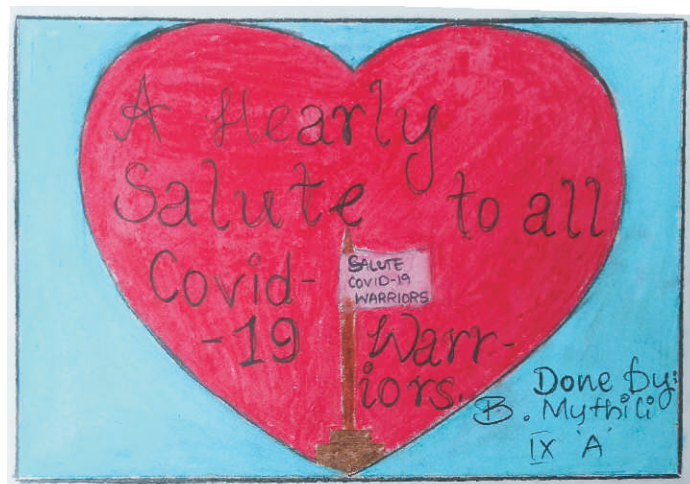 A Hearly
Salute to all
Covid-
-19 Warr-
iors.
SALUTE
COVID-19
WARRIORS
Done by:
B. Mythili
IX 'A'